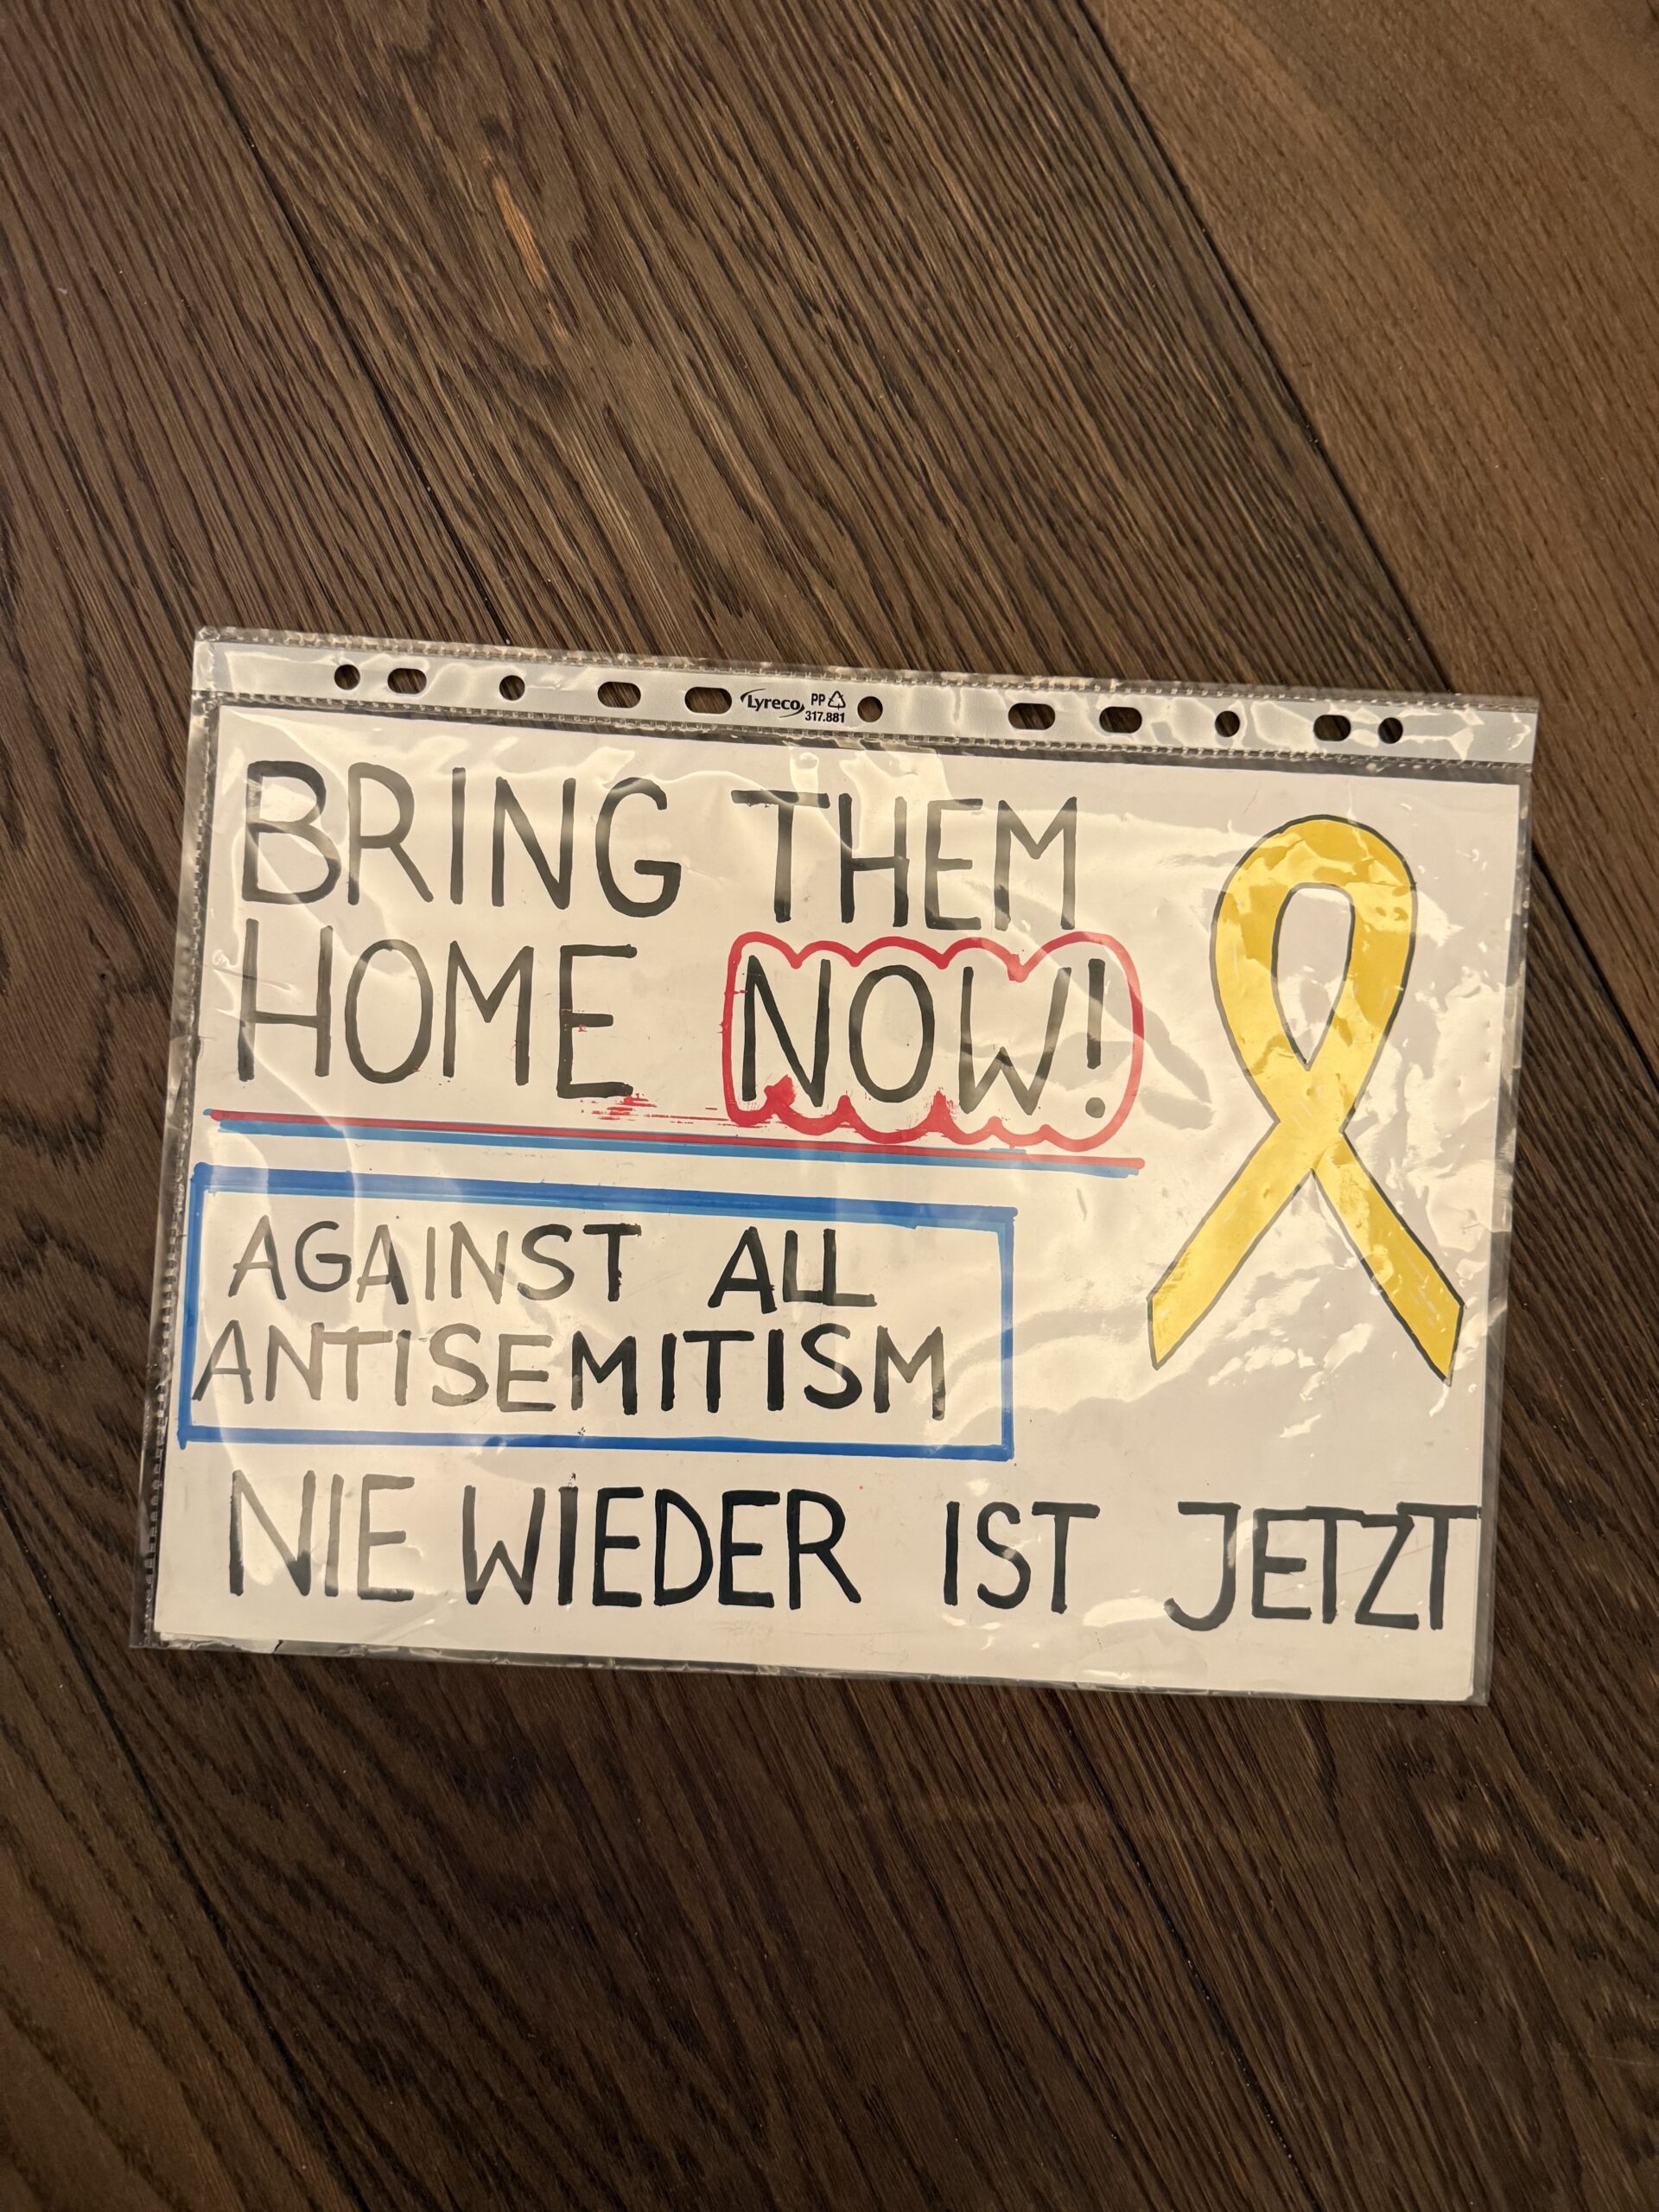 Lyreco PP
317.881
BRING THEM
HOME NOW!
AGAINST ALL
ANTISEMITISM
NIE WIEDER IST JETZT